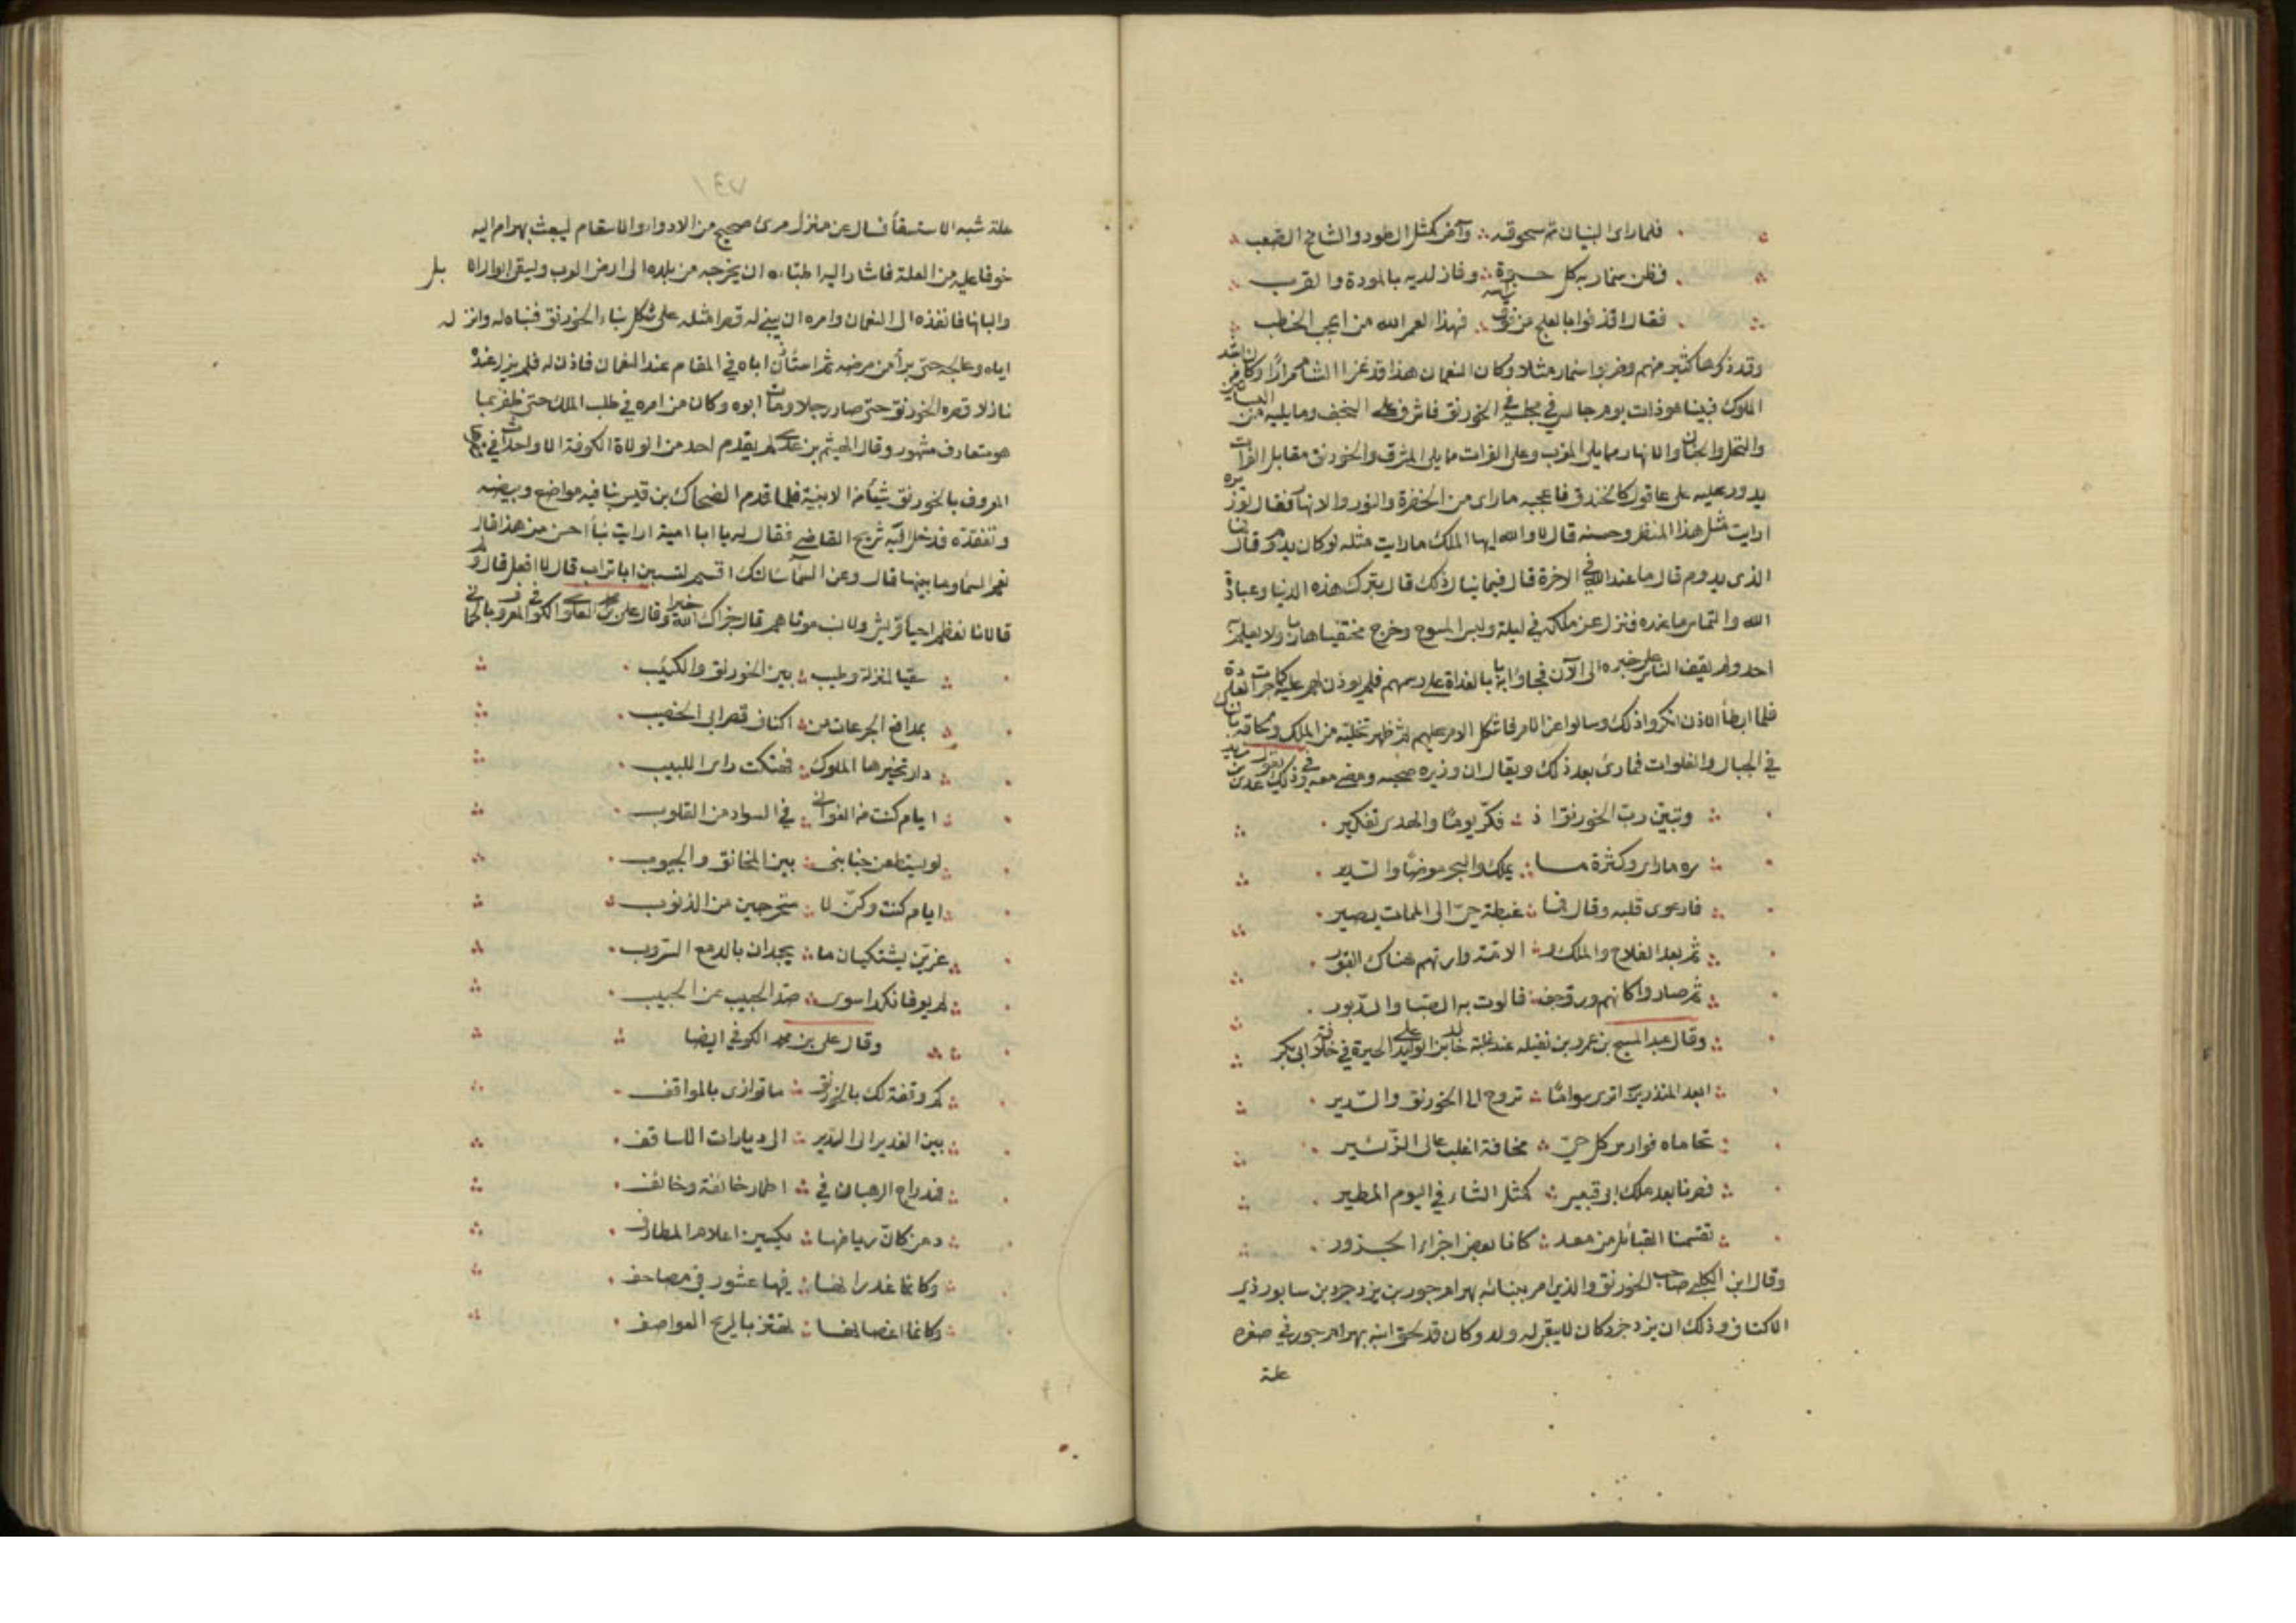 فلما رأى البنيان تم سحوقه وآض كمثل الطود والشامخ الصعب
فظن سنمار به كل حبوة وفاز لديه بالمودة والقرب
فقال اقذفوا بالعلج من فوق رأسه فهذا لعمر الله من اعجب الخطب
وقد ذكرها كثير منهم وضربوا سنمار مثلا وكان النعمان هذا قد غزا الشام مرارًا وكان من اشد
الملوك فبينا هو ذات يوم جالس في مجلسه في الخورنق فاشرف على النجف وما يليه من البساتين
والنخل والجنان والانهار مما يلي المغرب وعلى الفرات مما يلي المشرق والخورنق مقابل الفرات
يدور عليه على عاقول كالخندق فاعجبه ما راى من الخضرة والنور والانهار فقال لوزيره
ارايت مثل هذا المنظر وحسنه قال لا والله ايها الملك ما رايت مثله لو كان يدوم قال فما
الذى يدوم قال ما عند الله في الاخرة قال فبم ينال ذلك قال بترك هذه الدنيا وعبادة
الله والتماس ما عنده فنزل عن ملكه في ليلة ولبس المسوح وخرج مختفيا هاربا ولا يعلم به
احد ولم يقف الناس على خبره الى الآن فجاؤا بابه بالغداة على رسمهم فلم يوذن لهم عليه كما جرت العادة
فلما ابطأ الاذن انكروا ذلك وسالوا عن الامر فاشكل الامر عليهم ثم ظهر تخليته من الملك ولحاقه
في الجبال والفلوات فما رئ بعد ذلك ويقال ان وزيره صحبه ومضى معه وفي ذلك يقول عدى بن زيد
وتبين رب الخورنق اذ فكر يومًا والهدى تفكير
سره ما راى وكثرة ما يملك والبحر معرضًا والسدير
فارعوى قلبه وقال فما غبطة حي الى الممات يصير
ثم بعد الفلاح والملك والامة وارتهم هناك القبور
ثم صاروا كانهم ورق جف فالوت به الصبا والدبور
وقال عبد المسيح بن عمرو بن نفيله عند غلبة خالد بن الوليد على الحيرة في خلافة ابى بكر
ابعد المنذرين ارى سوامًا تروح الى الخورنق والسدير
تحاماه فوارس كل حي مخافة اغلب عالى الزئير
فصرنا بعد ملك ابى قبيس كمثل الشاء في اليوم المطير
تقسمنا القبائل من معد كانا بعض اجزاء الجزور
وقال ابن الكلبى صاحب الخورنق والذي امر ببنائه بهرام جور بن يزدجرد بن سابور ذي
الاكتاف وذلك ان يزدجرد كان لا يبقى له ولد وكان قد لحق ابنه بهرام جور في صغره
علة
علة شبه الاستسقا فسال عن منزل مرئ صحيح من الادواء والاسقام ليبعث بهرام اليه
خوفا عليه من العلة فاشار اليه اطباءه ان يخرجه من بلده الى ارض العرب ويسقى ابوال الابل
والبانها فانفذه الى النعمان وامره ان يبنى له قصرا مثله على شكل بناء الخورنق فبناه له وانزله
اياه وعالجه حتى برأ من مرضه ثم استأذن اباه في المقام عند النعمان فاذن له فلم يزل عنده
نازلا قصره الخورنق حتى صار رجلا ومات ابوه وكان من امره في طلب الملك حتى ظفر بما
هو متعارف مشهور وقال الهيثم بن عدى لم يقدم احد من الولاة الكوفة الا واحدث في قصرها
المعروف بالخورنق شيأ من الابنية فلما قدم الضحاك بن قيس بنا فيه مواضع وبيضه
وتفقده فدخل اليه شريح القاضي فقال له يا ابا امية ارايت بنأ احسن من هذا قال
نعم السماء وما بينها قال وعن السماء سالتك اقسم لتسبن ابا تراب قال لا افعل قال ولم
قال لانا نعظم احياء قريش ولا نسب موتاهم قال جزاك الله خيرا وقال علي بن محمد العلوي الكوفي المعروف بالحماني
سقيا لمنزلة وطيب بين الخورنق والكثيب
بمدافع الجرعات من اكناف قصر ابى الخصيب
دار تخيرها الملوك فهتكت راى اللبيب
ايام كنت من الغواني في السواد من القلوب
لو يستطعن خبأننى بين المخانق والجيوب
ايام كنت وكن لا متحرجين من الذنوب
غرين يشتكيان ما يجدان بالدمع السروب
لم يعرفا نكدا سوى صد الحبيب عن الحبيب
وقال علي بن محمد الكوفي ايضا
كم وقفة لك بالخورنق ما توازى بالمواقف
بين الغدير الى السدير الى ديارات الاساقف
فمدارج الرهبان في اطمار خائفة وخائف
دمن كان رياضها يكسين اعلام المطارف
وكانما غدرانها فيها عشور في مصاحف
وكانما اغصانها تهتز بالريح العواصف